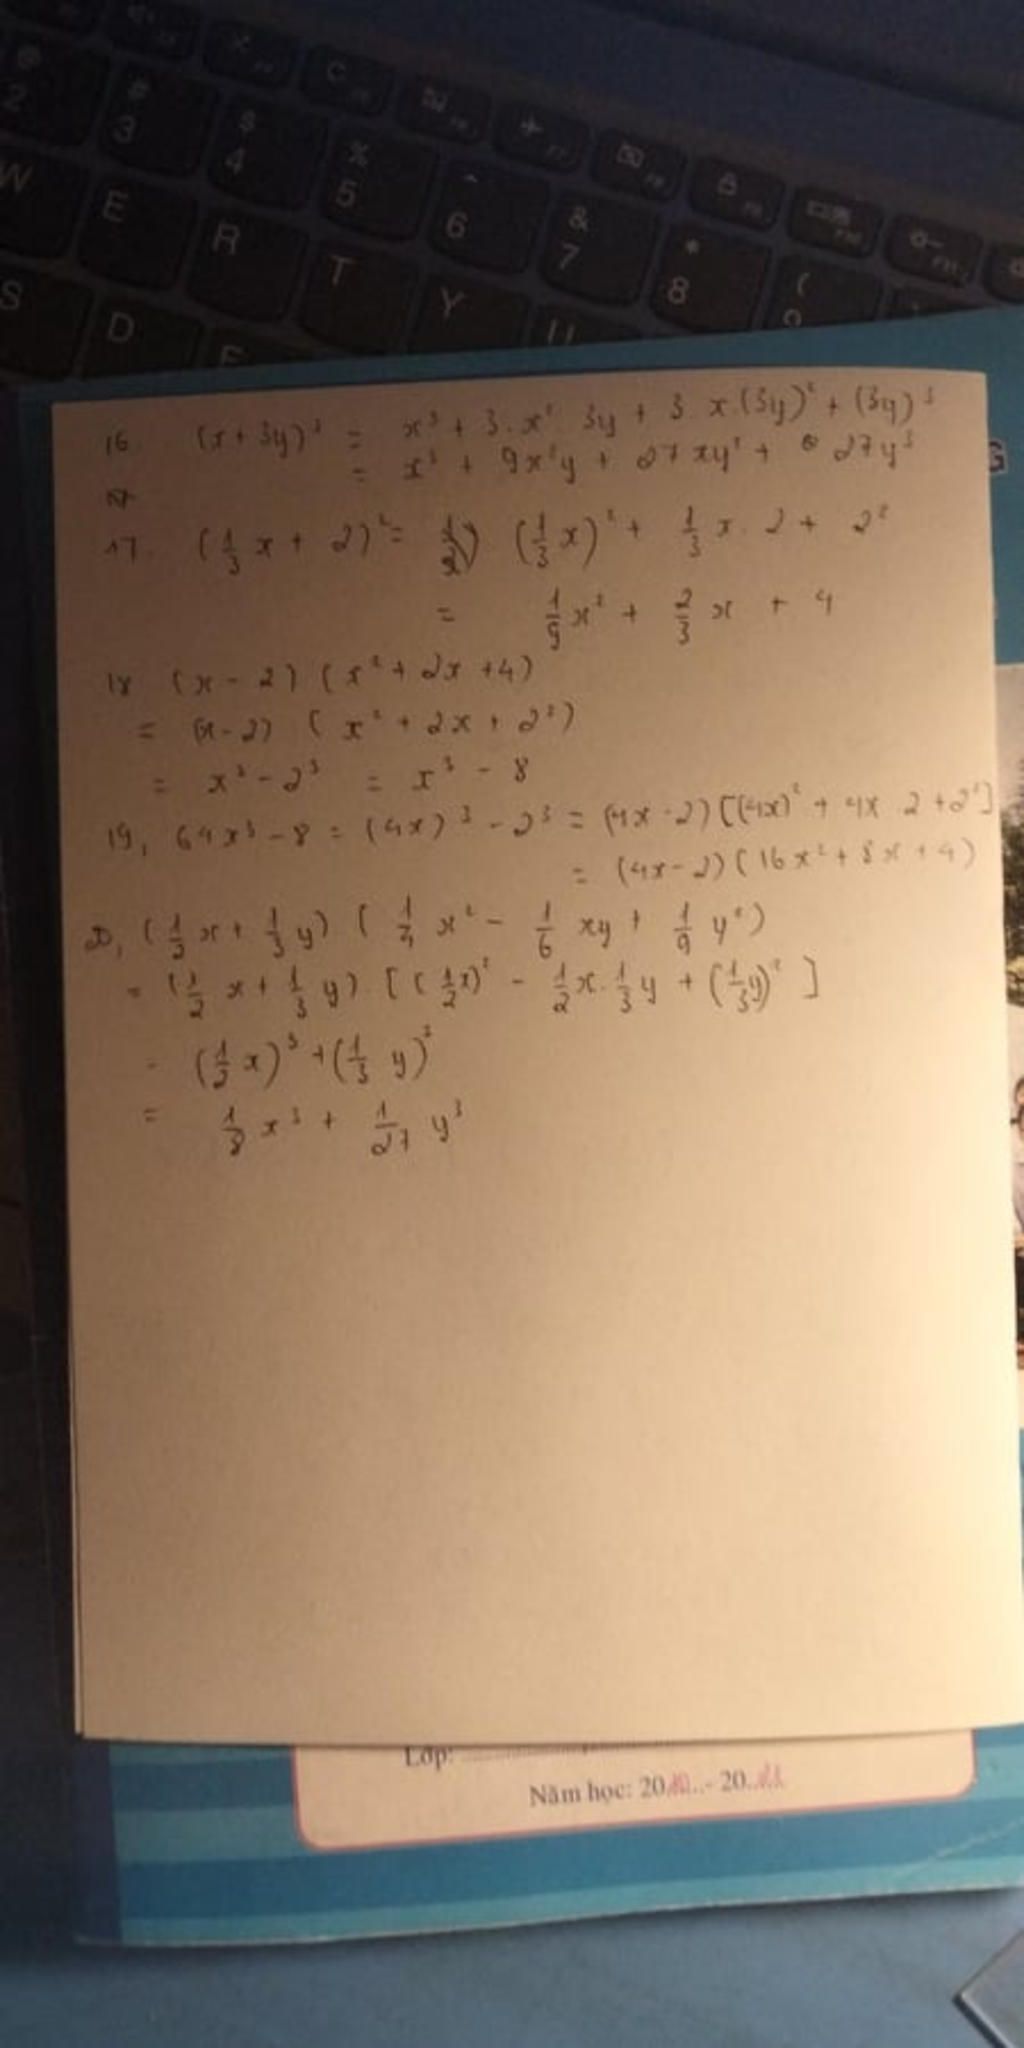 @ 2
# 3
$ 4
% 5
^ 6
& 7
* 8
( 9
W E R T Y U
S D F
G
16. (x + 3y)³ = x³ + 3.x² 3y + 3 x.(3y)² + (3y)³
= x³ + 9x²y + 27xy² + 27y³
17. (1/3 x + 2)² = (1/3 x)² + 1/3 x. 2 + 2²
= 1/9 x² + 2/3 x + 4
18 (x - 2) (x² + 2x + 4)
= (x - 2) (x² + 2x + 2²)
= x³ - 2³ = x³ - 8
19, 64x³ - 8 = (4x)³ - 2³ = (4x - 2) [(4x)² + 4x 2 + 2²]
= (4x - 2) (16x² + 8x + 4)
20, (1/2 x + 1/3 y) (1/4 x² - 1/6 xy + 1/9 y²)
= (1/2 x + 1/3 y). [(1/2 x)² - 1/2 x. 1/3 y + (1/3 y)²]
= (1/2 x)³ + (1/3 y)³
= 1/8 x³ + 1/27 y³
Lớp:
Năm học: 20 - 20